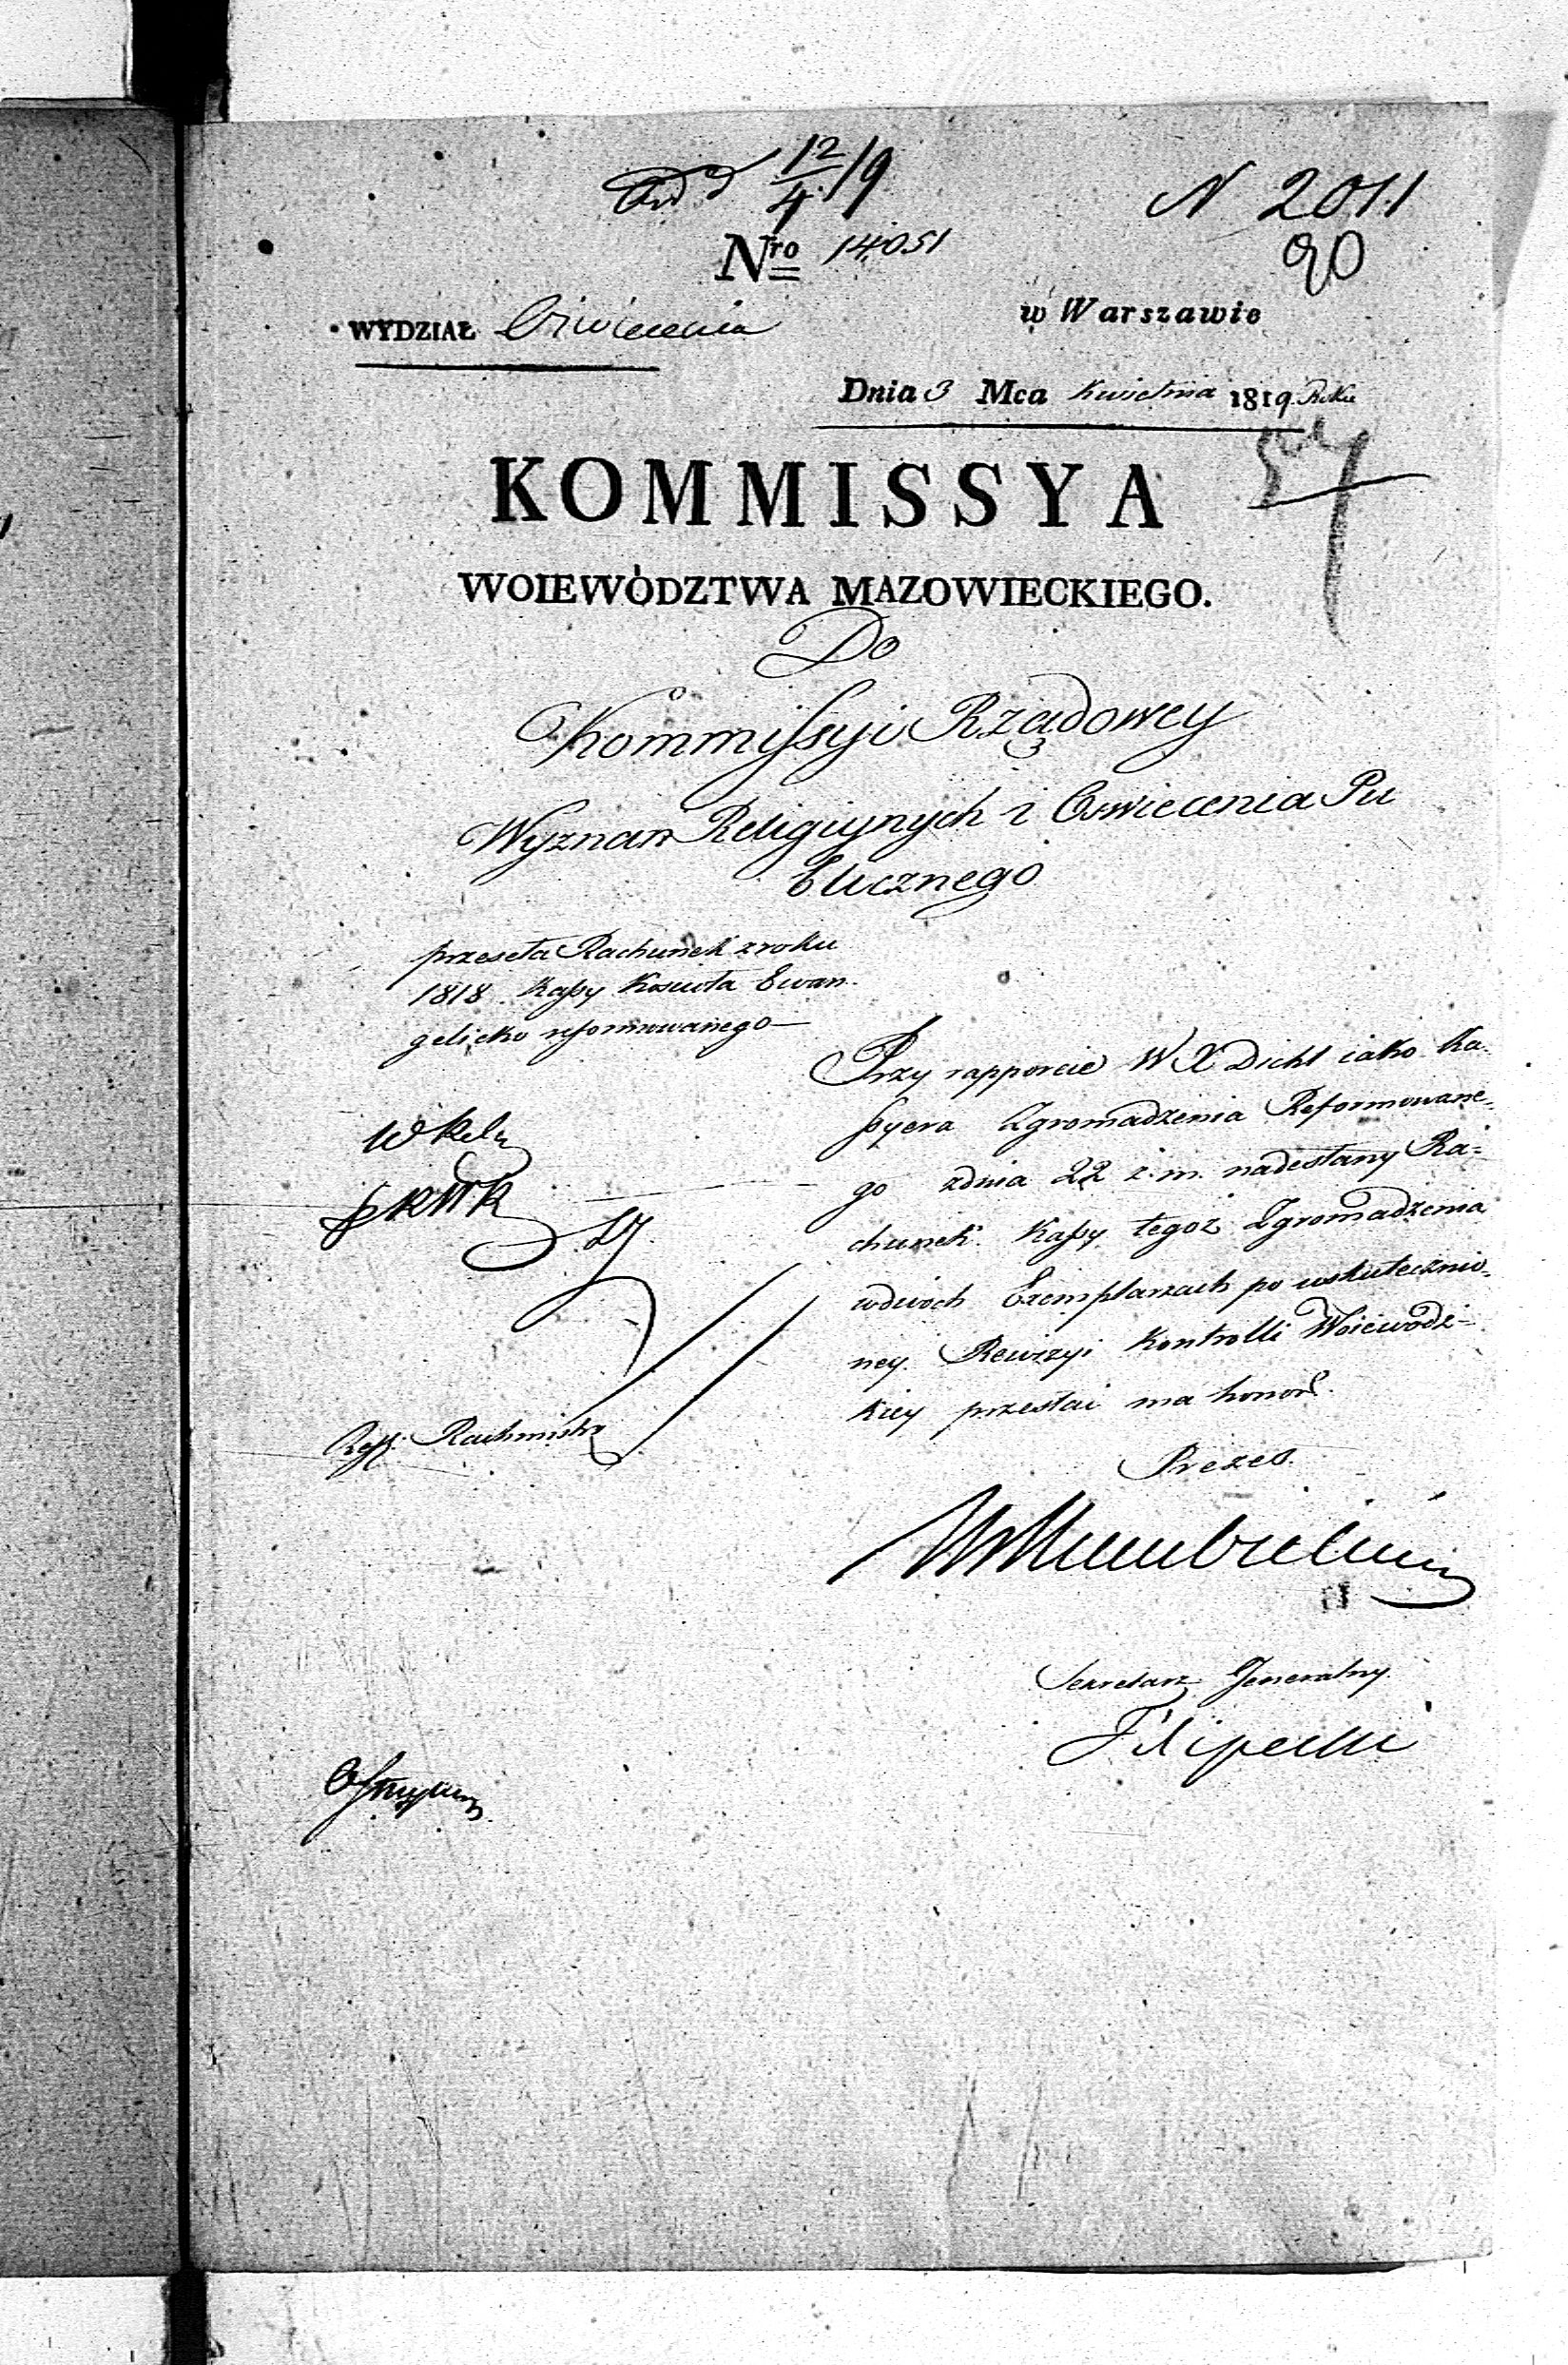 12/4 19
N 2011
Nro 14051
90
WYDZIAŁ Oswiecenia
w Warszawie
Dnia 3 Mca Kwietnia 1819 Roku
57
KOMMISSYA
WOIEWÓDZTWA MAZOWIECKIEGO.
Do
Kommissyi Rządowey
Wyznan Religiynych i Oswiecenia Pu
blicznego
przeseła Rachunek z roku
1818 Kassy Koscioła Ewan-
gelicko reformowanego
Przy rapporcie W X Diehl iako Ka-
ssyera Zgromadzenia Reformowane-
go z dnia 22 z. m. nadesłany Ra-
chunek Kassy tegoż Zgromadzenia
w dwóch Exemplarzach po uskutecznio-
ney Rewizyi Kontrolli Woiewódz-
kiey przesłać ma honor.
Prezes.
Rachmistrz
Sekretarz Jeneralny.
Filipecki